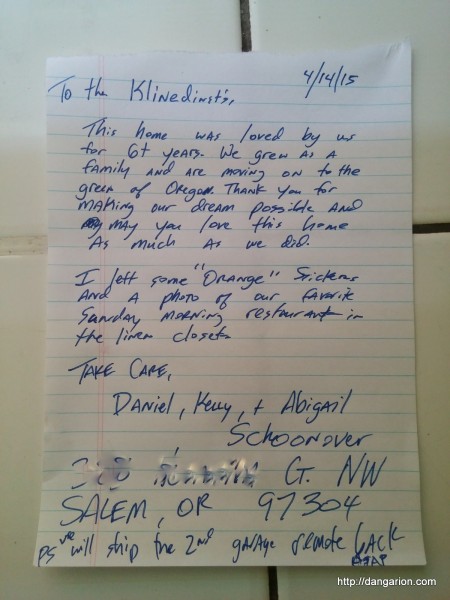 4/14/15
To the Klinedinst's,
This home was loved by us
for 6+ years. We grew as a
family and are moving on to the
green of Oregon. Thank you for
making our dream possible and
may you love this home
as much as we did.
I left some "Orange" Stickers
and a photo of our favorite
Sunday morning restaurant in
the linen closet.
Take Care,
Daniel, Kelly, + Abigail
Schoonover
Ct. NW
Salem, OR 97304
PS we will ship the 2nd garage remote back
ASAP
http://dangarion.com